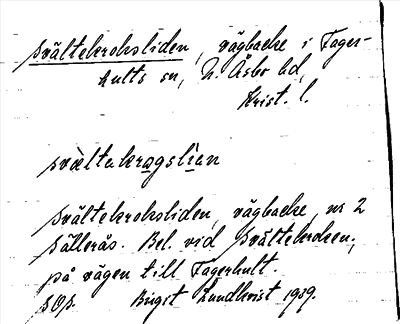 Svältekroksliden, vägbacke i Fager-
hults sn, N. Åsbo hd,
Krist. l.
svæltakragslian
Svältekroksliden, vägbacke, nr 2
Sällerås. Bel. vid Svältekroken,
på vägen till Fagerhult.
SOS. Birgit Lundkvist 1939.